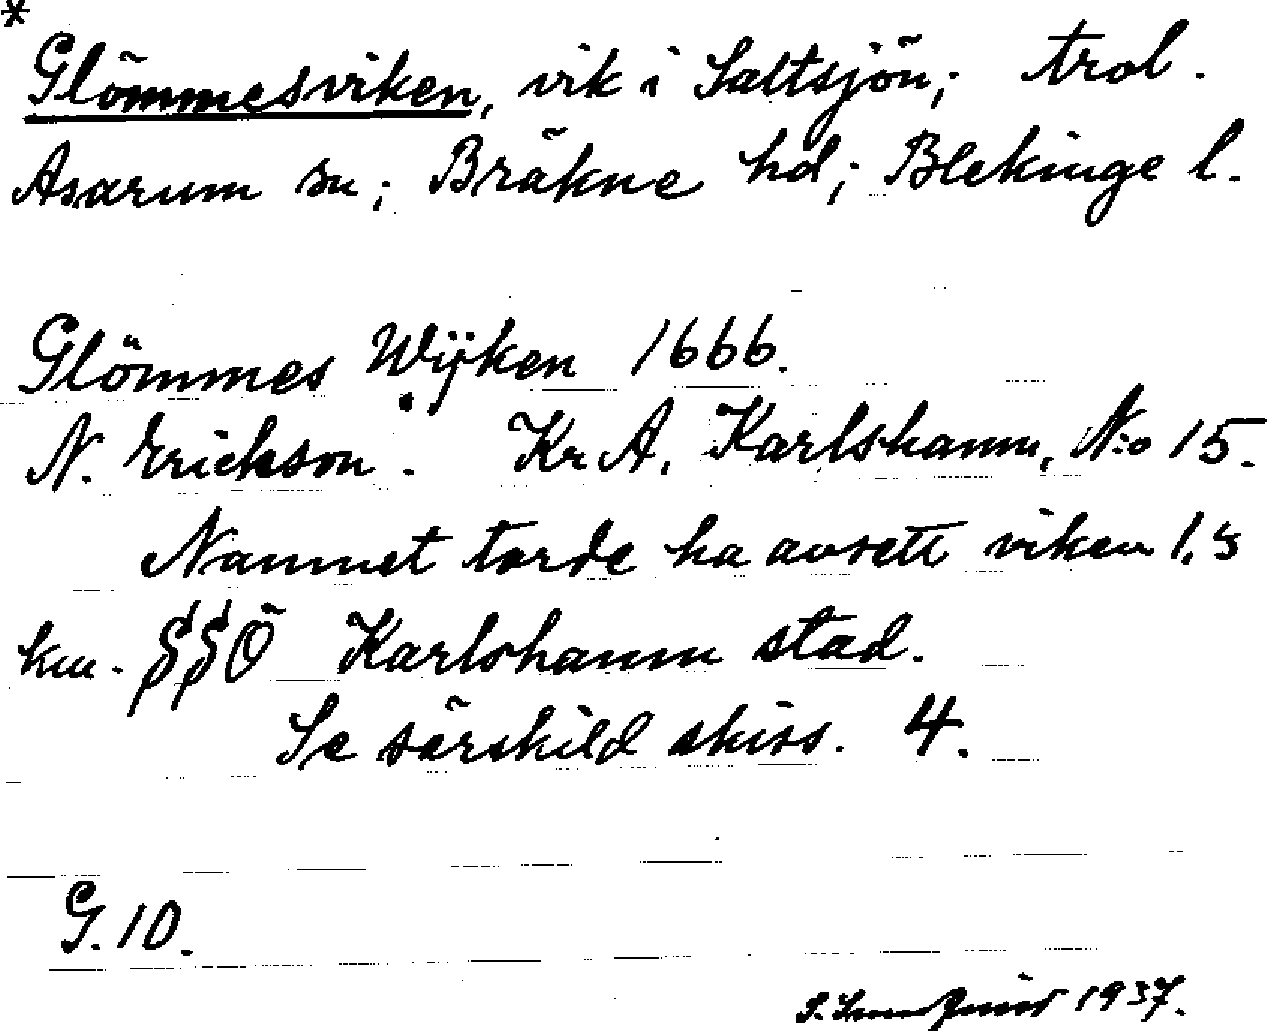 *
Glömmesviken, vik i Saltsjön; trol.
Asarum sn; Bräkne hd; Blekinge l.
Glömmes Wijken 1666.
N. Erickson. KrA, Karlshamn, N:o 15.
Namnet torde ha avsett viken 1,5
km. SSÖ Karlshamn stad.
Se särskild skiss. 4.
G. 10.
1937.